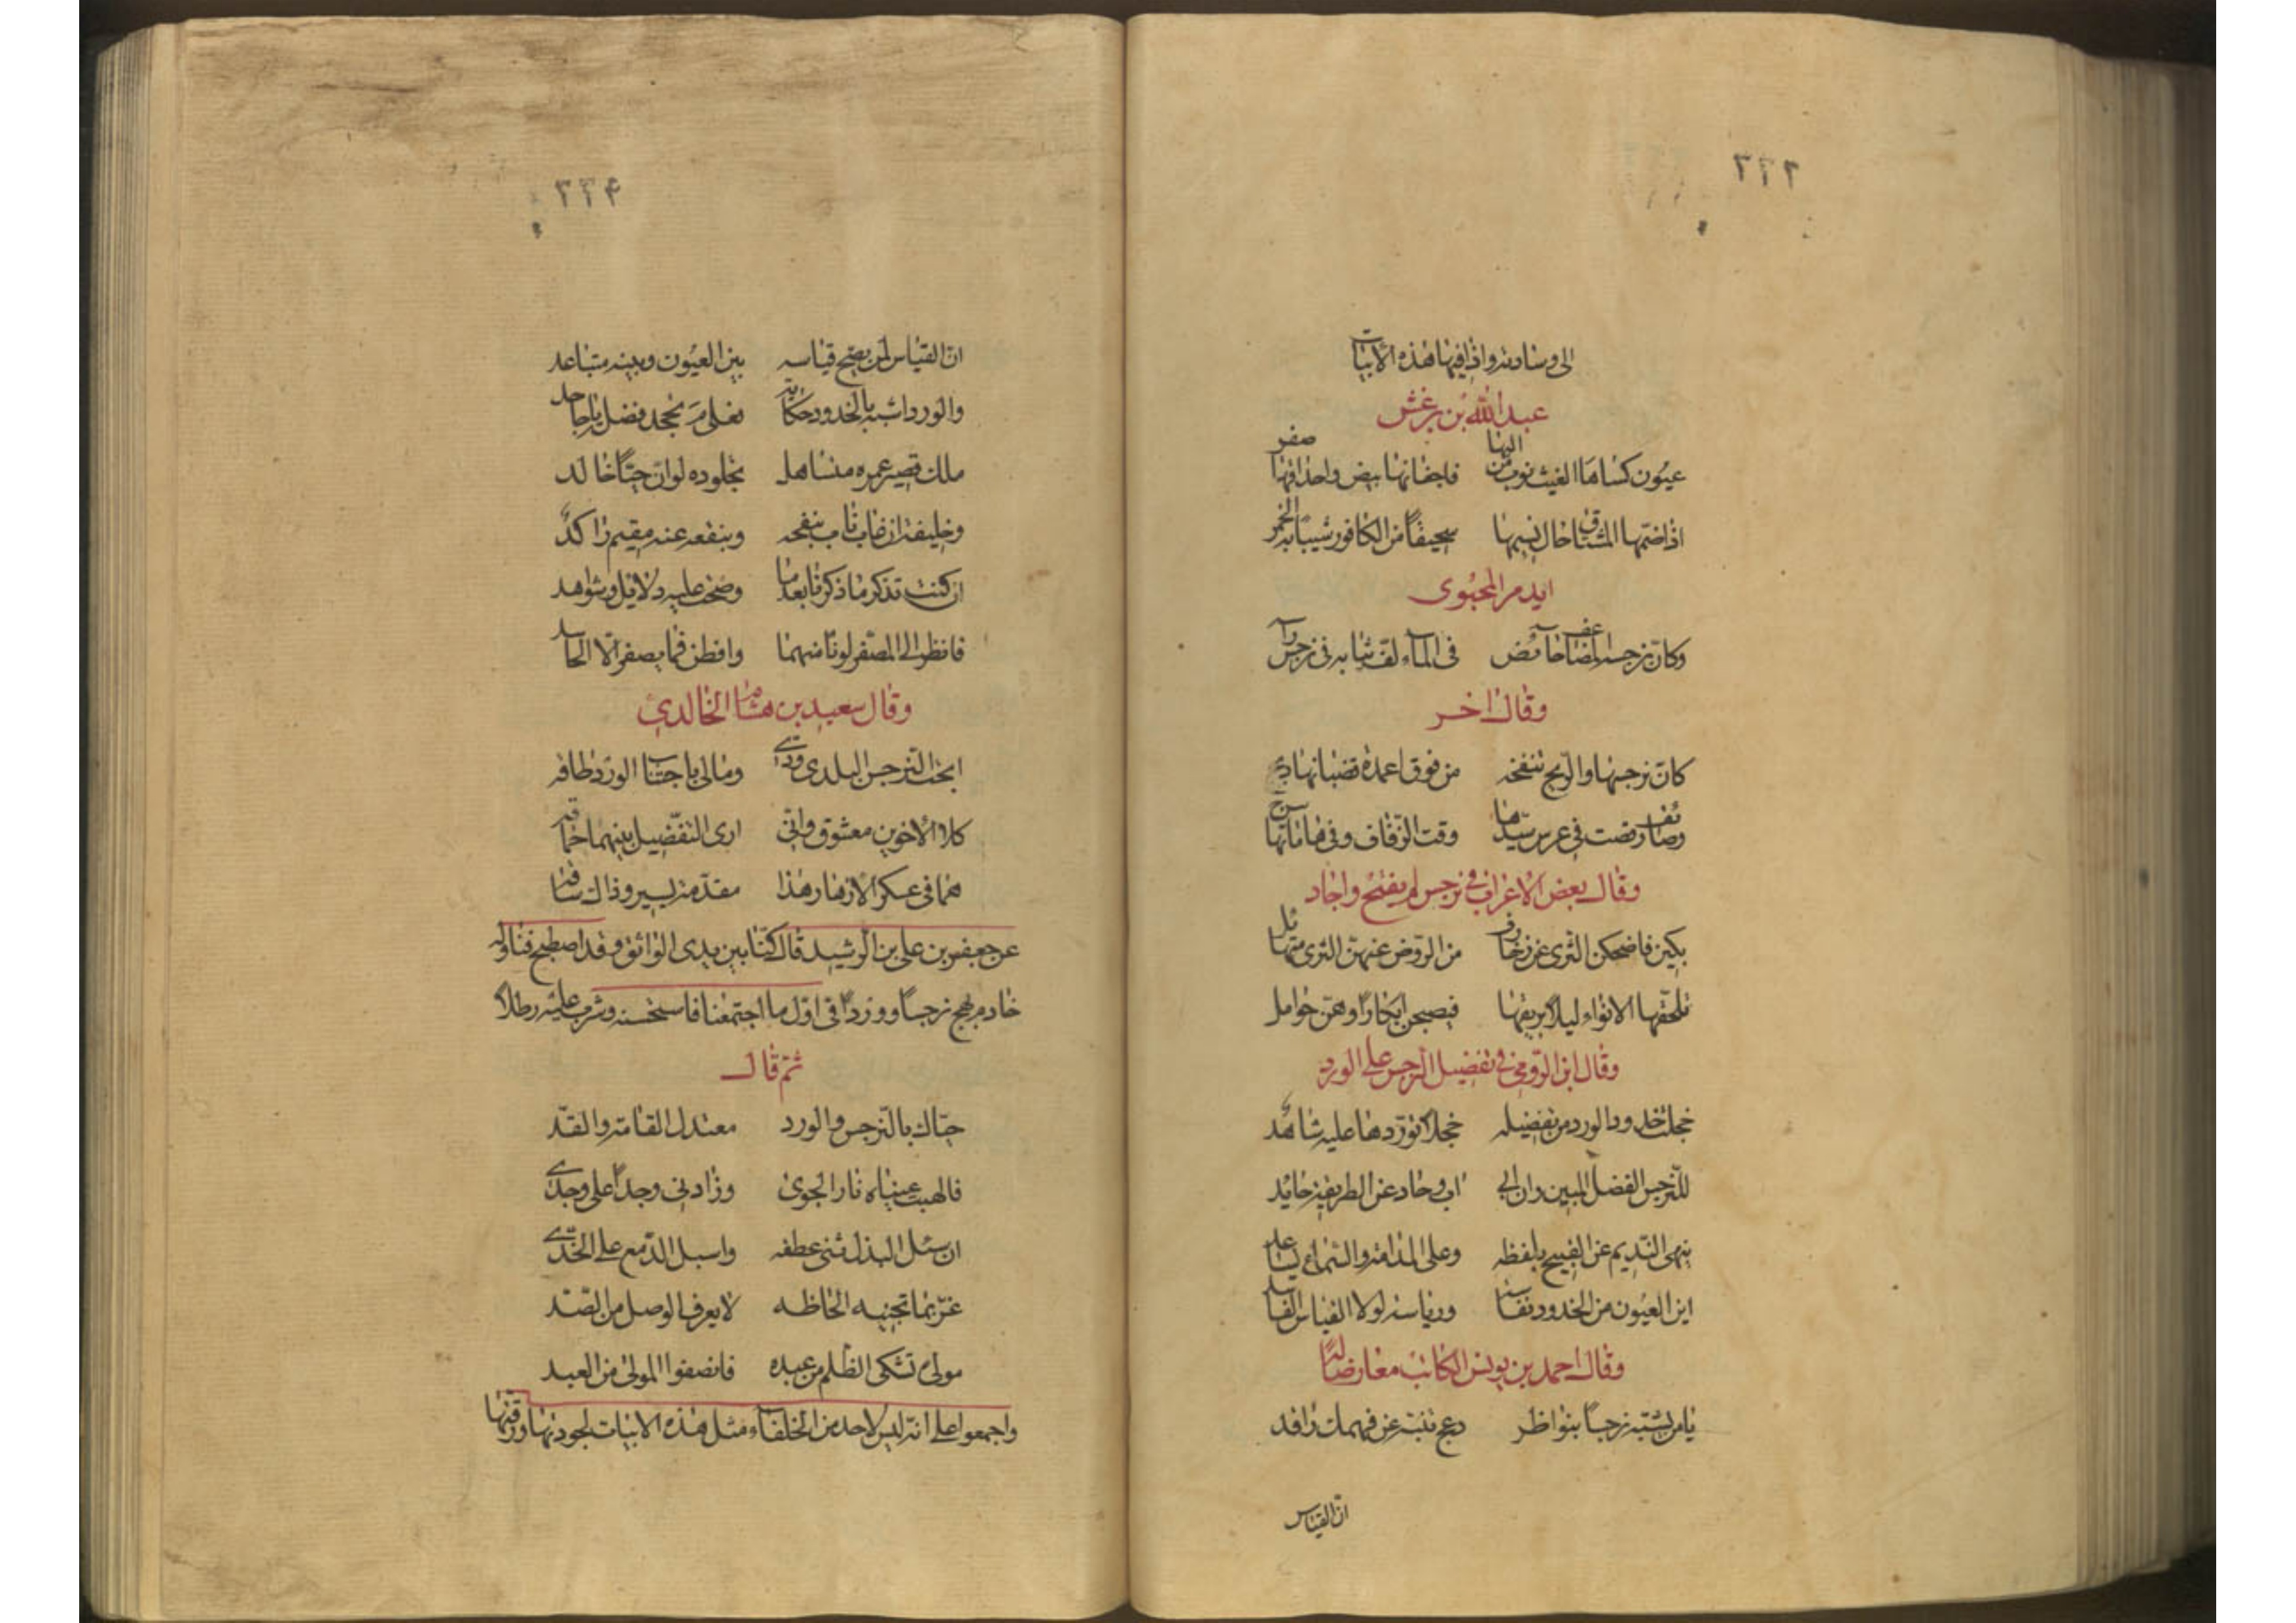 ٢٢٦
الى وسادته واذا فيها هذه الأبيات
عبد الله بن برغش
عيون كساها الغيث ثوب من البها فاجفانها بيض واحداقها صفر
اذا ضمها المشتاق خال نسيمها سحيقاً من الكافور شيب به الخمر
ايدمر المحيوى
وكان نرجسه المضاعف خائض فى الماء لف ثيابه فى راسه
وقال اخر
كان نرجسها والريح تنفحه من فوق اعمدة قضبانها
وصائف رقصت فى عرس سيدها وقت الزفاف وفى هاماتها سرج
وقال بعض الاعراب فى نرجس لم يفتح واجاد
بكين فاضحكن الثرى عن زخارف من الروض عنهن الثرى متهائل
تلحقها الانواء ليلا بريقها فيصبحن ابكاراً وهن حوامل
وقال ابن الرومى فى تفضيل النرجس على الورد
خجلت خدود الورد من تفضيله خجلا توردها عليه شاهد
للنرجس الفضل المبين وان ابى اب وحاد عن الطريقة حايد
ينهى النديم عن القبيح بلفظه وعلى المدامة والسماع يساعد
اين العيون من الخدود نفاسة ورياسة لولا القياس الفاسد
وقال احمد بن يونس الكاتب معارضا له
يا من يشبه نرجساً بنواظر دعج تنبه عن فهمك راقد
ان القياس
٢٢٤
ان القياس لمن يصح قياسه بين العيون وبينه متباعد
والورد اشبه بالخدود حكاية فعلى مَ تجحد فضله يا جاحد
ملك قصير عمره متساهل بخلوده لو ان حيّاً خالد
وخليفة ان غاب ناب بنفحه وبنفعه عنه مقيم راكدٌ
ان كنت تذكر ما ذكرنا بعدما وضحت عليه دلايل وشواهد
فانظر الى المصفر لونا منهما وافطن فما يصفر الا الحاسد
وقال سعيد بن هشام الخالدى
ابحت النرجس البلدى ودى ومالى باجتناب الورد طاقه
كلا الاخوين معشوق وانى ارى التفضيل بينهما حماقه
هما فى عسكر الازهار هذا مقدمة يسير وذاك ساقه
عن جعفر بن على بن الرشيد قال كنا بين يدى الواثق وقد اصطبح فناوله
خادم مهج نرجساً وورداً فى اول ما اجتمعنا فاستحسنه وشرب عليه رطلا
ثم قال
حياك بالنرجس والورد معتدل القامة والقد
فالهبت عيناه نار الجوى وزادنى وجداً على وجدى
ان سئل البذل ثنى عطفه واسبل الدمع على الخدى
غرّ بما تجنيه الحاظه لا يعرف الوصل من الصد
مولى تشكى الظلم من عبده فانصفوا المولى من العبد
واجمعوا على انه ليس لاحد من الخلفاء مثل هذه الابيات لجودتها ورقتها